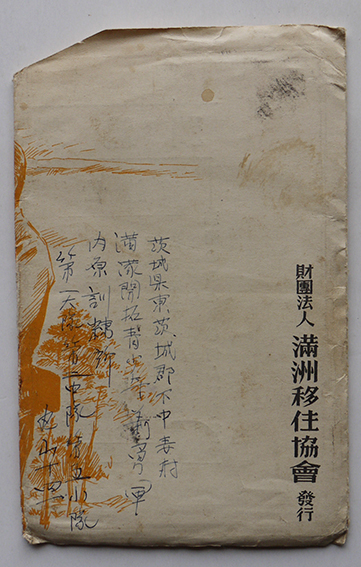 財團法人 滿洲移住協會 發行
茨城県東茨城郡下中妻村
満蒙開拓青少年義勇軍
内原訓練所
第一大隊第一中隊第五小隊